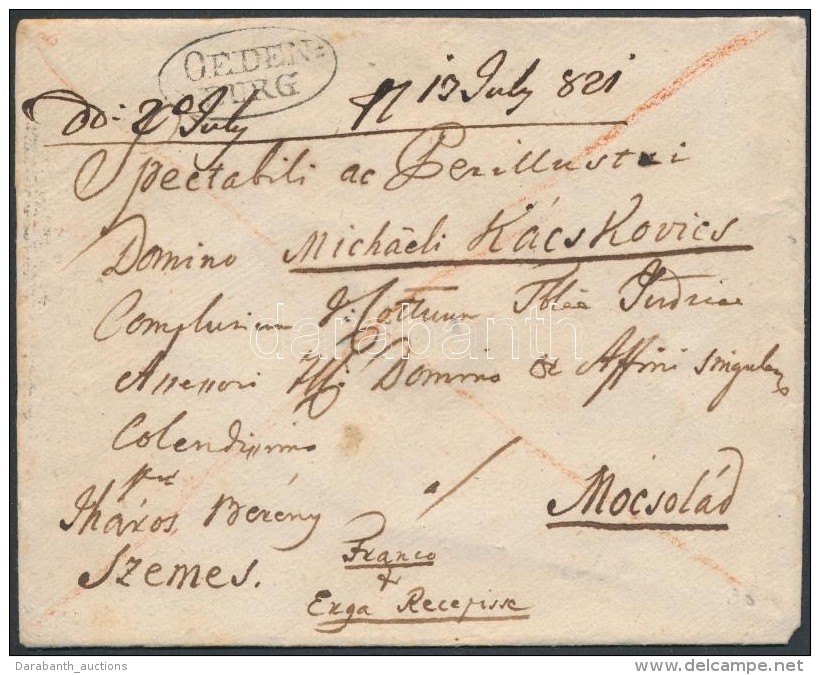 OEDEN=
BURG
dd: 2d July pr 13 July 821
Spectabili ac Perillustri
Domino Michäeli Kácskovics
Complurium I: Cottuum Tblae Judriae
Assessori Domino & Affini singular
Colendissimo
darabanth
pr
Iháros Berény
Szemes.
Mocsolád
Franco
Erga Recepisse
Darabanth_auctions
www.delcampe.net